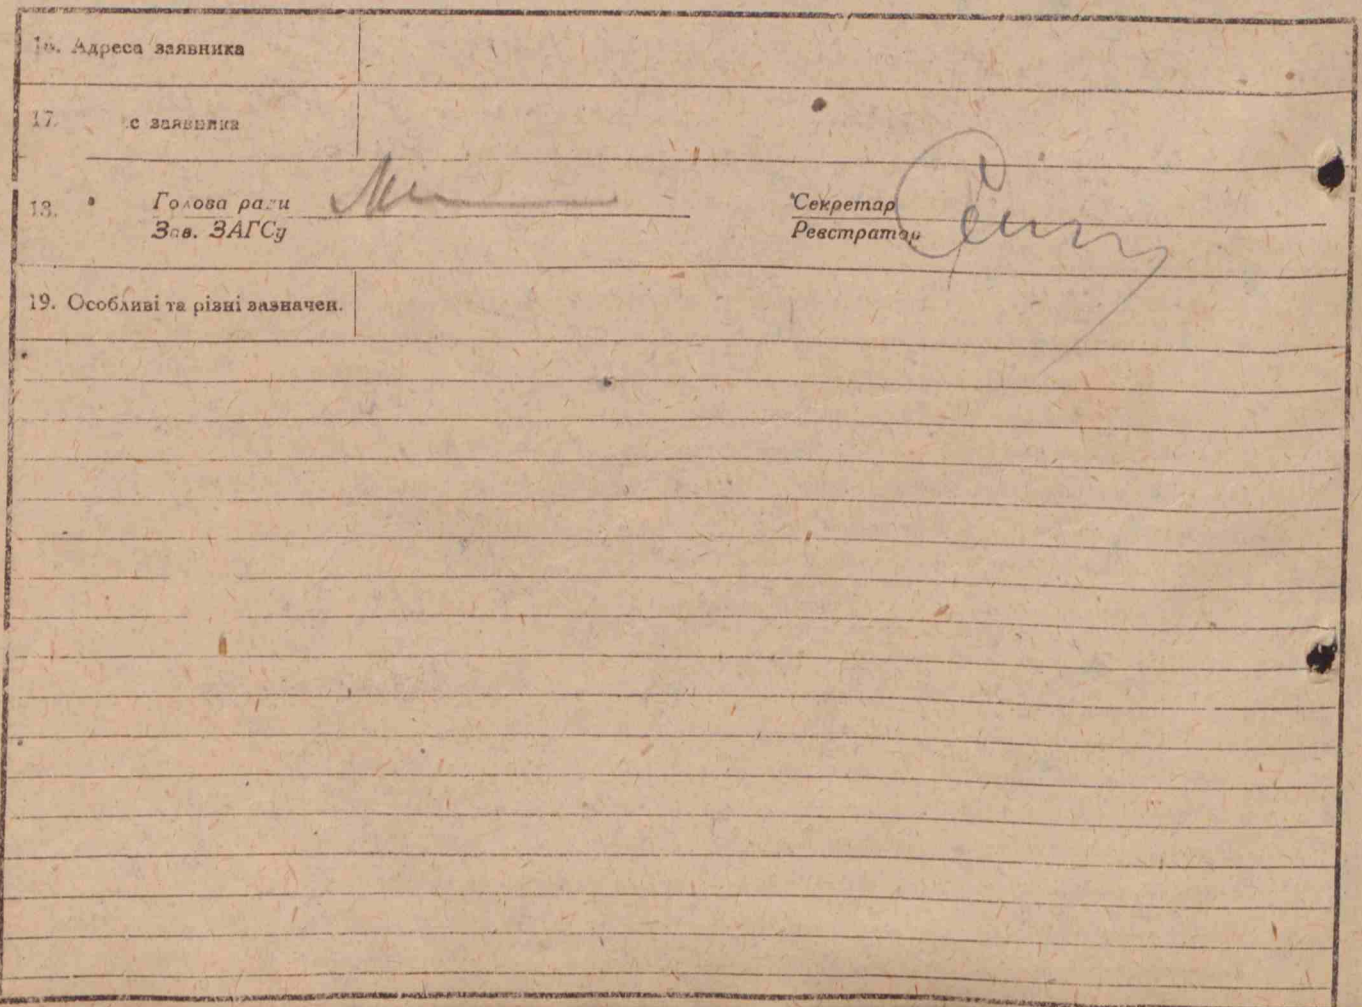 16. Адреса заявника
17. с заявника
18. Голова ради Секретар
Зав. ЗАГСу Реєстратор
19. Особливі та різні зазначен.